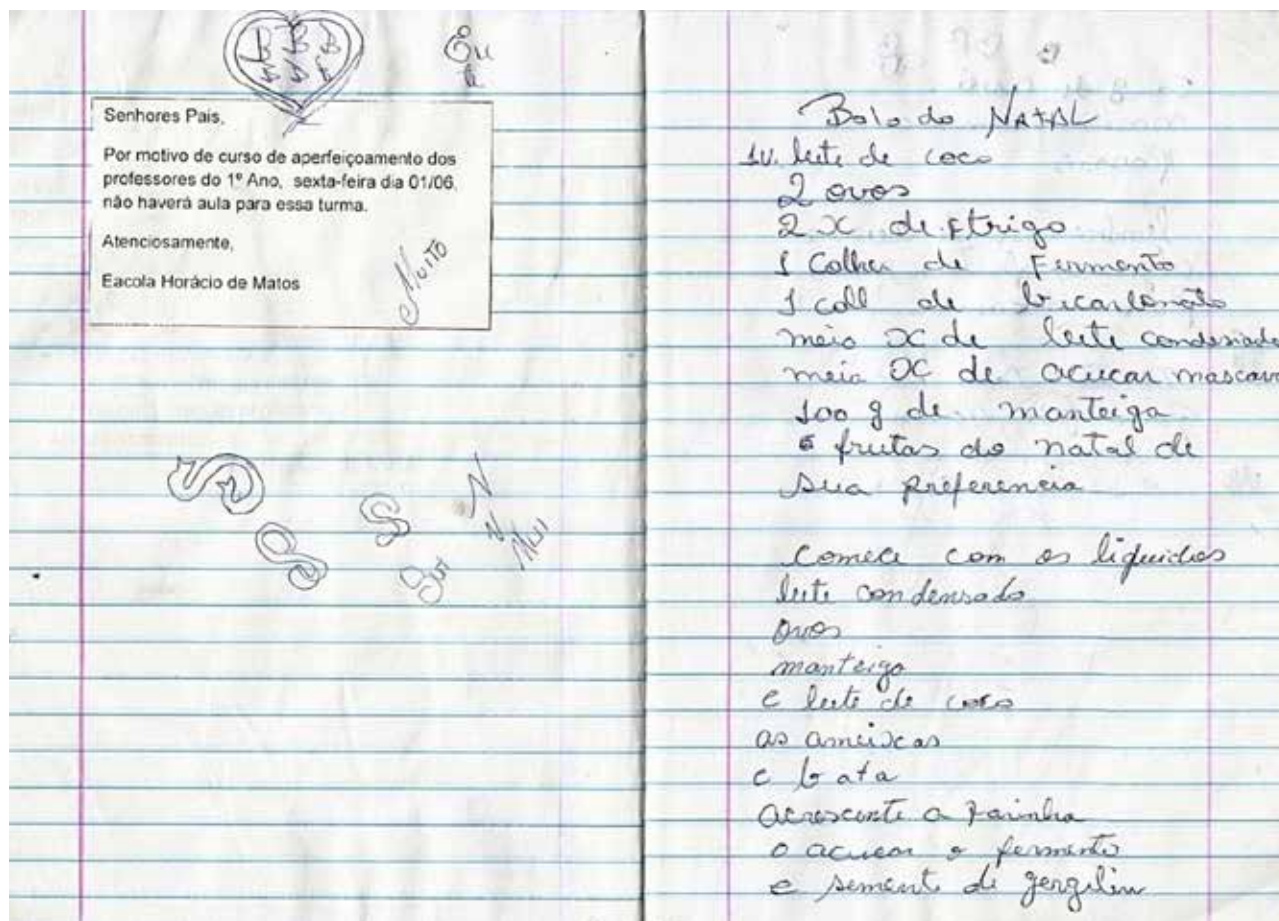 Eu
Senhores Pais,
Por motivo de curso de aperfeiçoamento dos
professores do 1º Ano, sexta-feira dia 01/06,
não haverá aula para essa turma.
Atenciosamente,
Eacola Horácio de Matos
Muito
N
N
Mui
Bolo do NATAL
1v. leite de coco
2 ovos
2 x de f trigo
1 Colher de Fermento
1 coll de bicarbonato
meio x de leite condensado
meia x de acucar mascavo
100 g de manteiga
frutas do natal de
sua preferencia
comece com os liquidos
leite condensado
ovos
manteiga
e leite de coco
as ameixas
e bata
acrescente a farinha
o acucar o fermento
e semente de gergelim